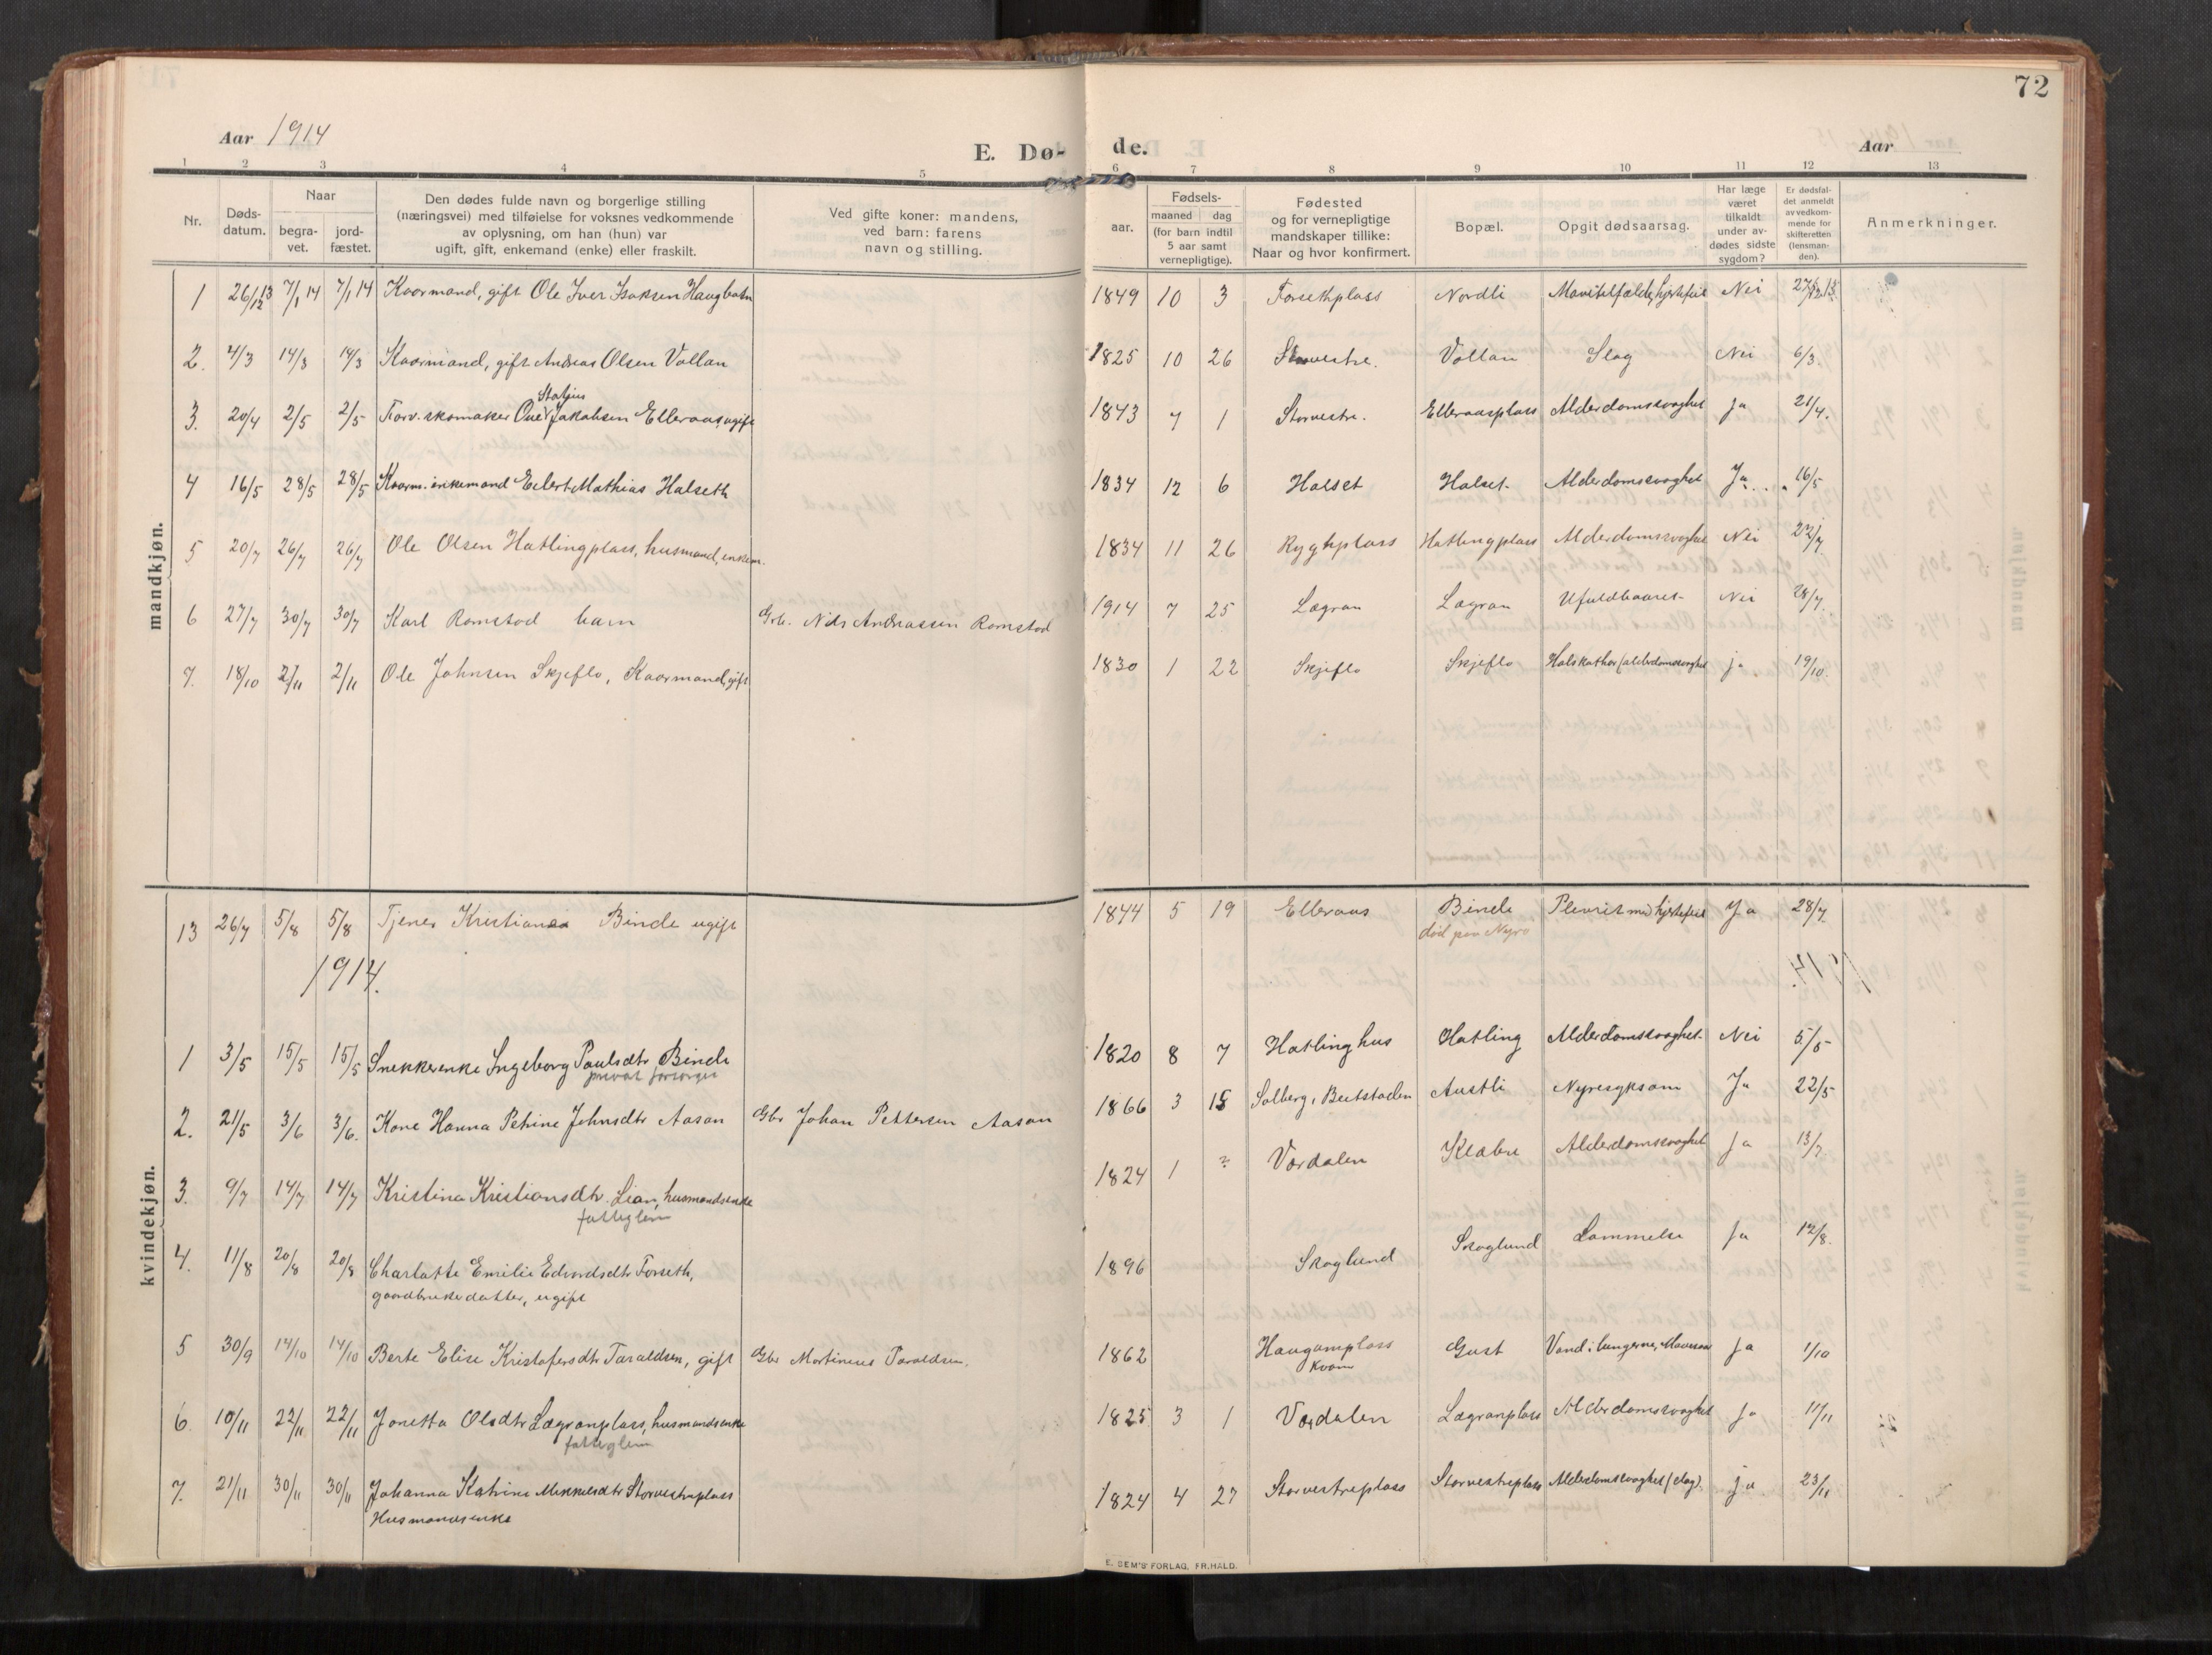 72
Aar 1914
E. Dø-
de.
Aar
1 2 3 4 5 6 7 8 9 10 11 12 13
Nr.
Døds-
datum.
Naar
begra-
vet.
jord-
fæstet.
Den dødes fulde navn og borgerlige stilling
(næringsvei) med tilføielse for voksnes vedkommende
av oplysning, om han (hun) var
ugift, gift, enkemand (enke) eller fraskilt.
Ved gifte koner: mandens,
ved barn: farens
navn og stilling.
Fødsels-
aar.
maaned
dag
(for barn indtil
5 aar samt
vernepligtige).
Fødested
og for vernepligtige
mandskaper tillike:
Naar og hvor konfirmert.
Bopæl.
Opgit dødsaarsag.
Har læge
været
tilkaldt
under av-
dødes sidste
sygdom?
Er dødsfal-
det anmeldt
av vedkom-
mende for
skifteretten
(lensman-
den).
Anmerkninger.
mandkjøn.
1 26/12 13 7/1 14 7/1 14 Kaarmand, gift Ole Iver Isaksen Haugbotn 1849 10 3 Forsethplass Nordli hjertefeil Nei 27/12 13.
2. 4/3 14/3 14/3 Kaarmand, gift Andreas Olsen Vollan 1825 10 26 Storvestre. Vollan Slag Nei 6/3.
3. 20/4 2/5 2/5 Forv. skomaker Jakobsen Elleraas, ugift 1843 7 1 Storvestre. Elleraasplass Alderdomssvaghet Ja 21/4.
4 16/5 28/5 28/5 Kaarm. enkemand Eilert Mathias Halseth 1834 12 6 Halset Halset Alderdomssvaghet Ja 16/5
5 20/7 26/7 26/7 Ole Olsen Hatlingplass, husmand, enkem. 1834 11 26 Ryghplass Hatlingplass Alderdomssvaghet Nei 22/7.
6 27/7 30/7 30/7 Karl Romstad barn Grb. Nils Andreassen Romstad 1914 7 25 Lægran Lægran Ufuldbaaret Nei 28/7.
7. 18/10 2/11 2/11 Ole Johnsen Skjeflo, Kaarmand, gift 1830 1 22 Skjeflo Skjeflo Halskathar (alderdomssvaghet ja 19/10.
kvindekjøn.
13 26/7 5/8 5/8 Tjener Binde ugift 1844 5 19 Elleraas Binde Plevrit med hjertefeil Ja 28/7.
død paa Nyro
1914.
1 3/5 15/5 15/5 Snekkerenke Ingeborg Paulsdtr Binde 1820 8 7 Hatlinghus Hatling Alderdomssvaghet Nei 5/5
privat forsørget
2. 21/5 3/6 3/6. Kone Hanna Petrine Johnsdtr Aasan Gbr Johan Pettersen Aasan 1866 3 15 Solberg, Beitstaden Austli Nyresykdom Ja 22/5
3. 9/7 14/7 14/7 Kristina Kristiansdtr. Lian, husmandsenke 1824 1 ? Værdalen Klæbu Alderdomssvaghet Ja 13/7
fatteglem
4. 11/8 20/8 20/8 Charlotte Emilie Edvardsdtr Forseth, 1896 Skoglund Skoglund Lammelse Ja 12/8.
gaardbrukerdatter, ugift
5 30/9 14/10 14/10 Berte Elise Kristofersdtr Taraldsen, gift Gbr Martinius Taraldsen. 1862 Haugamplass Gust Vand i lungerne, Ja 1/10
Kvam
6. 10/11 22/11 22/11 Jonetta Olsdtr Lægranplass, husmandsenke 1825 3 1 Værdalen Lægranplass Alderdomssvaghet Ja 11/11
fatteglem
7. 21/11 30/11 30/11 Johanna Katrine Mikkelsdtr Storvestreplass 1824 4 27 Storvestreplass Storvestreplass Alderdomssvaghet (slag). ja 23/11
Husmandsenke
E. SEM'S FORLAG, FR.HALD.